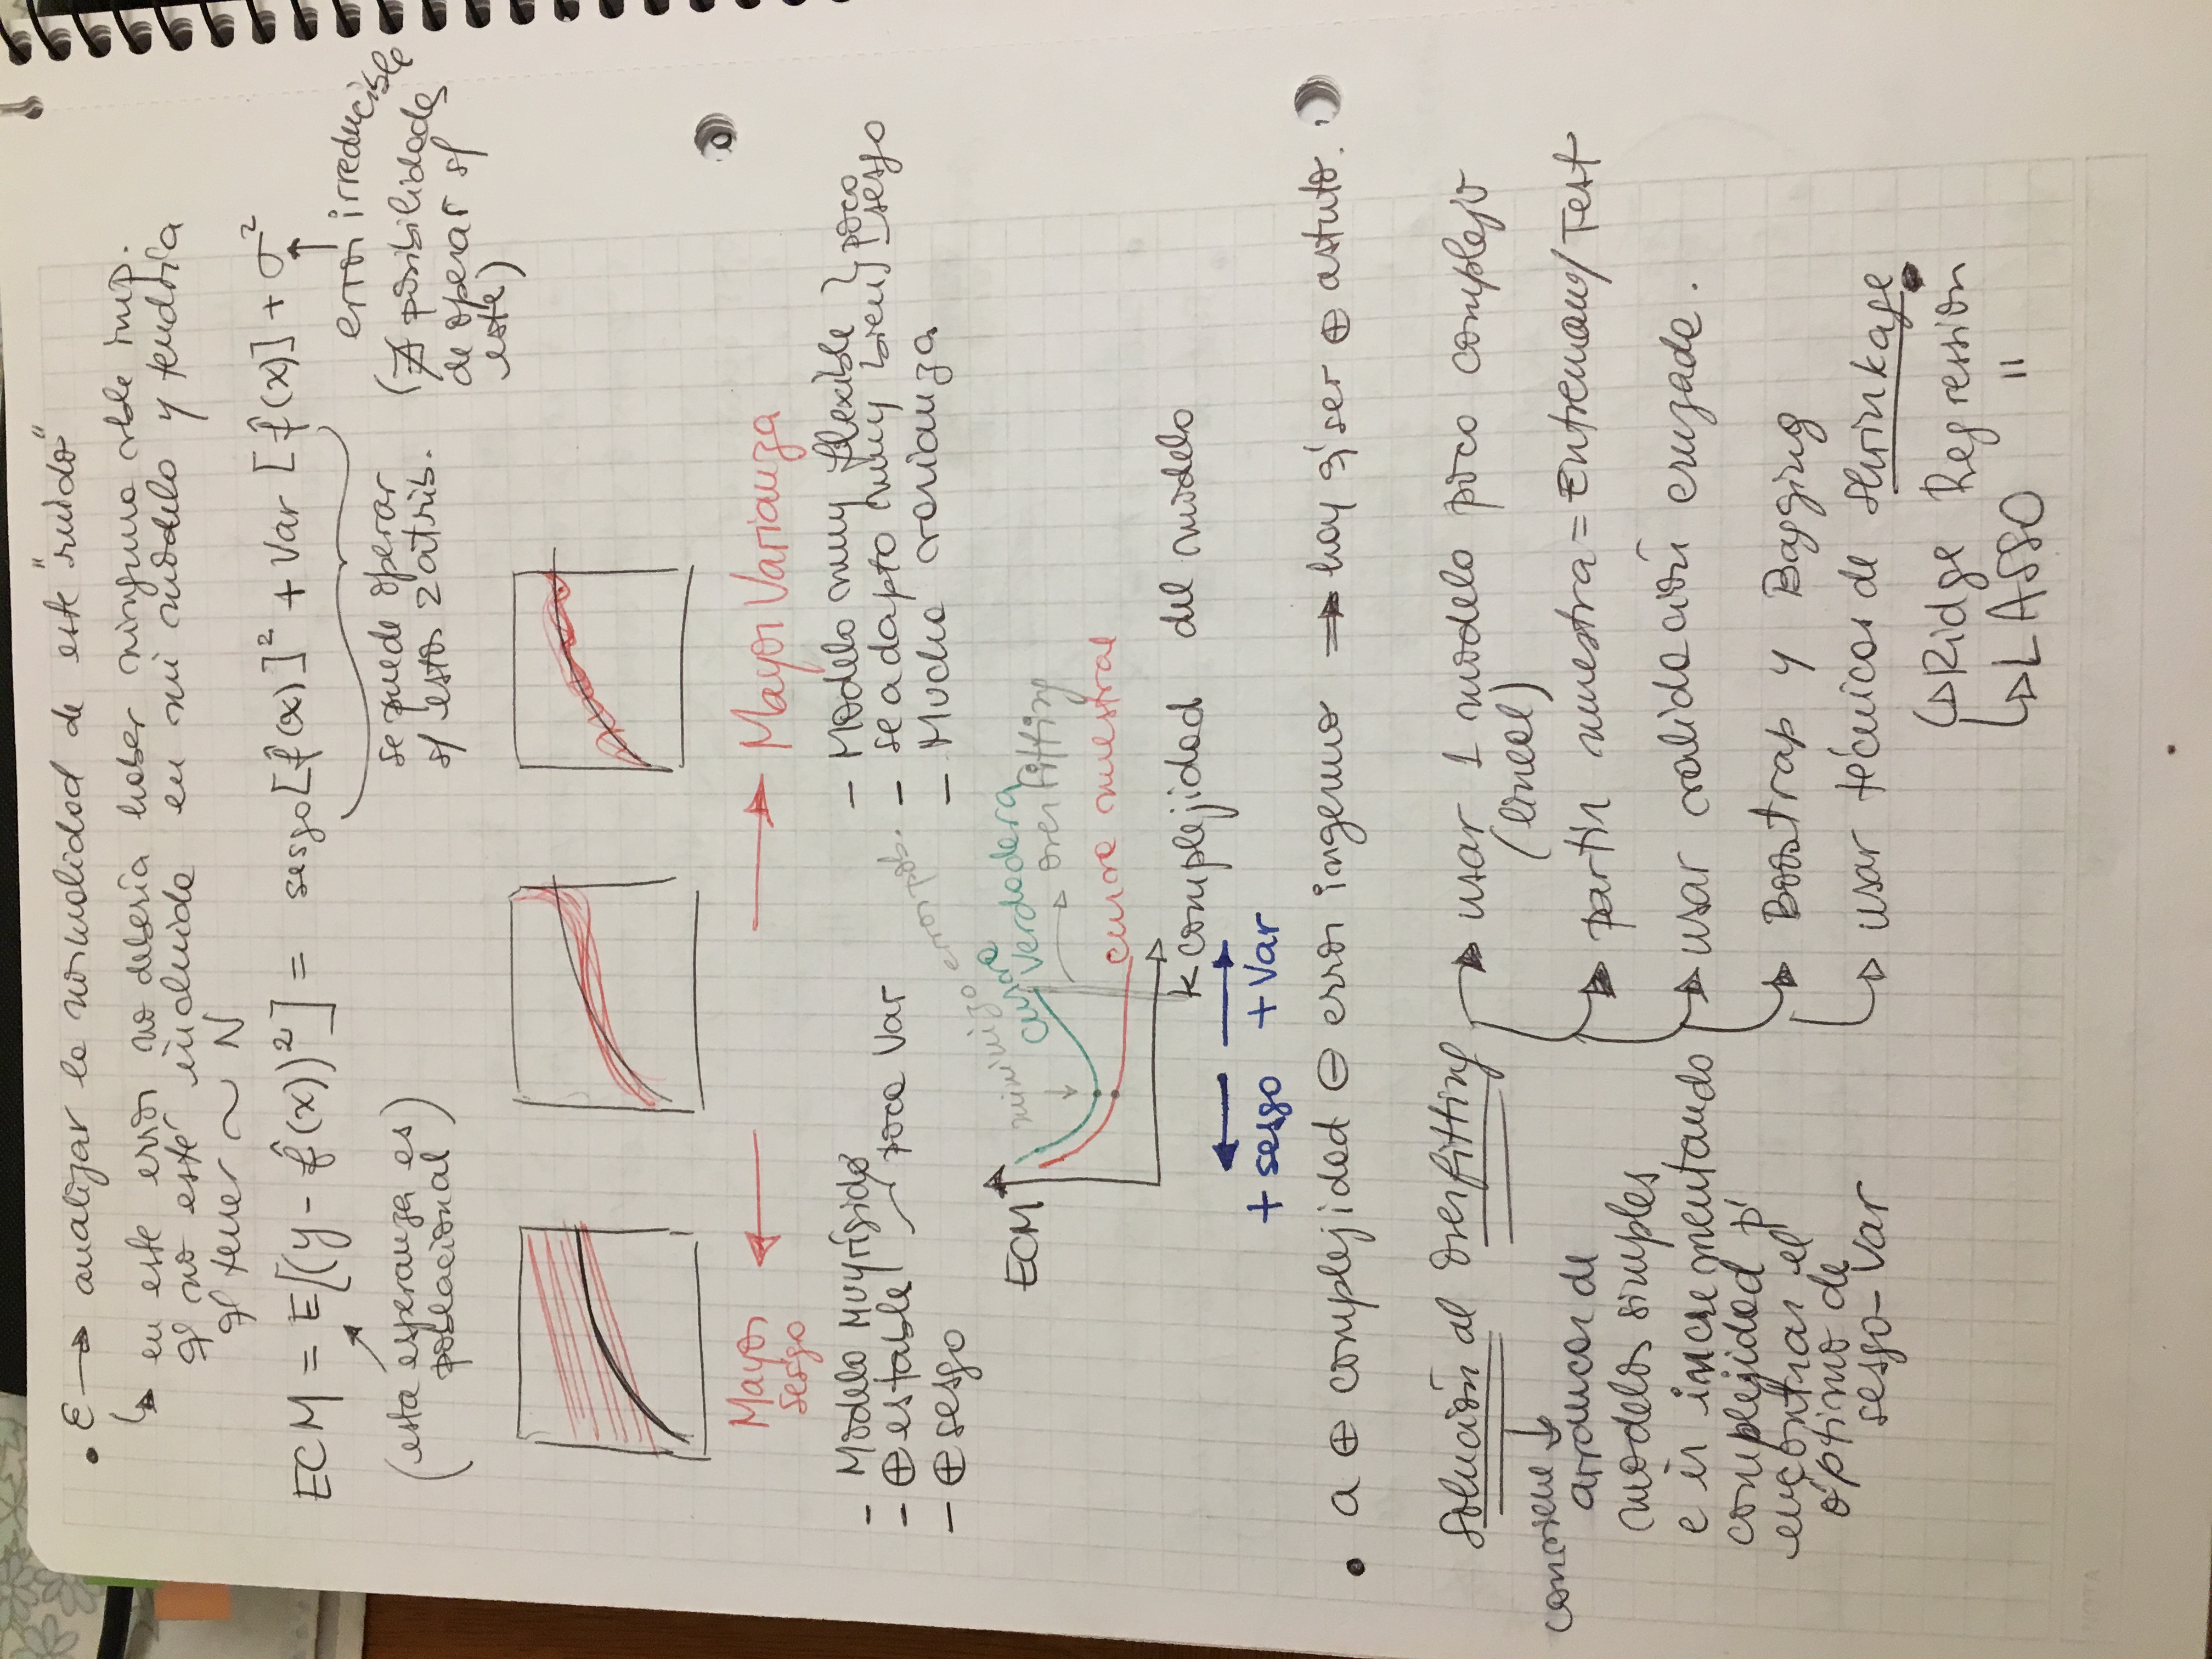 . ε → analizar la normalidad de este "ruido"
↳ en este error no debería haber ninguna vble imp.
q' no esté incluida en mi modelo y tendría
q' tener ~ N
ECM = E[(y - f̂(x))²] = sesgo[f̂(x)]² + Var [f̂(x)] + σ²
(esta esperanza es
poblacional)
se puede operar
s/ estos 2 atrib.
error irreducible
(∄ posibilidades
de operar s/
este)
Mayor
sesgo
Mayor Varianza
- Modelo muy rígido
- ⊕ estable poca Var
- ⊕ sesgo
- Modelo muy flexible } poco
- se adapta muy bien } sesgo
- Mucha varianza
minimizo error pob.
ECM
curva
verdadera
overfitting
curva muestral
k complejidad del modelo
+ sesgo + Var
• a ⊕ complejidad ⊖ error ingenuo ⇒ hay q' ser ⊕ astuto.
Solución al overfitting
conviene
arrancar de
modelos simples
e ir incrementando
complejidad p'
encontrar el
óptimo de
sesgo-Var
→ usar 1 modelo poco complejo
(lineal)
→ partir muestra = Entrenam/ Test
→ usar validación cruzada.
→ Boostrap y Bagging
→ usar técnicas de Shrinkage
↳ Ridge Regression
↳ LASSO "